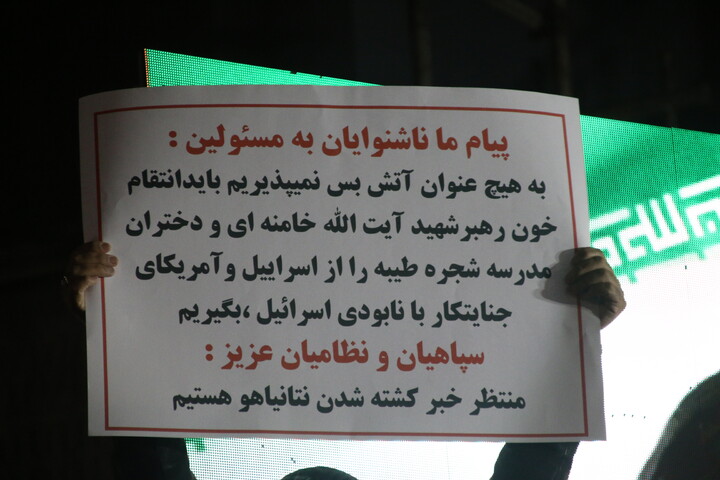 پیام ما ناشنوایان به مسئولین :
به هیچ عنوان آتش بس نمیپذیریم بایدانتقام
خون رهبرشهید آیت الله خامنه ای و دختران
مدرسه شجره طیبه را از اسراییل وآمریکای
جنایتکار با نابودی اسرائیل ،بگیریم
سپاهیان و نظامیان عزیز :
منتظر خبر کشته شدن نتانیاهو هستیم